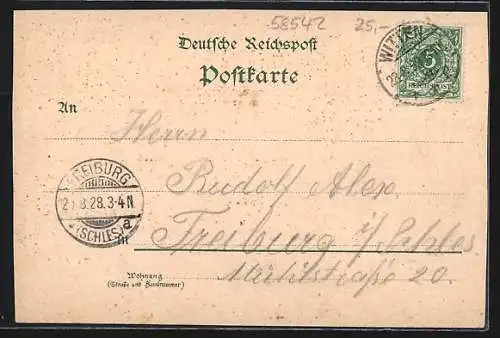 58542 25,-
Deutsche Reichspost
Postkarte
WITTEN
5
REICHSPOST
An
Herrn
Rudolf Alex.
FREIBURG
8.28.3-4N
(SCHLES)
a
in
Freiburg i/Schles
20.
Wohnung
(Straße und Hausnummer)